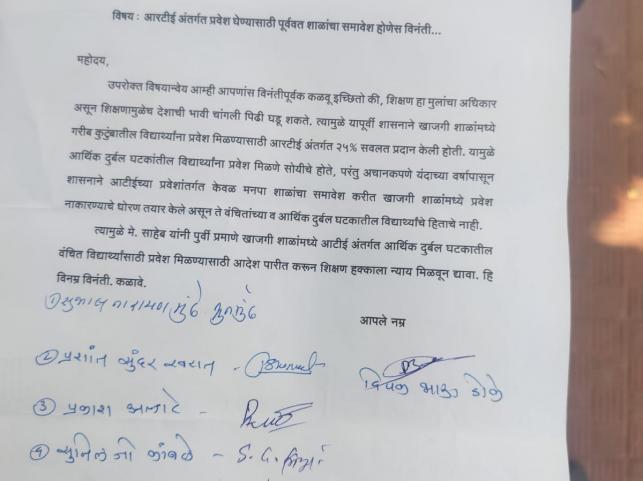 विषय : आरटीई अंतर्गत प्रवेश घेण्यासाठी पूर्ववत शाळांचा समावेश होणेस विनंती...
महोदय,
उपरोक्त विषयान्वेय आम्ही आपणांस विनंतीपूर्वक कळवू इच्छितो की, शिक्षण हा मुलांचा अधिकार
असून शिक्षणामुळेच देशाची भावी चांगली पिढी घडू शकते. त्यामुळे यापूर्वी शासनाने खाजगी शाळांमध्ये
गरीब कुटुंबातील विद्यार्थ्यांना प्रवेश मिळण्यासाठी आरटीई अंतर्गत २५% सवलत प्रदान केली होती. यामुळे
आर्थिक दुर्बल घटकांतील विद्यार्थ्यांना प्रवेश मिळणे सोयीचे होते, परंतु अचानकपणे यंदाच्या वर्षापासून
शासनाने आटीईच्या प्रवेशांतर्गत केवळ मनपा शाळांचा समावेश करीत खाजगी शाळांमध्ये प्रवेश
नाकारण्याचे धोरण तयार केले असून ते वंचितांच्या व आर्थिक दुर्बल घटकातील विद्यार्थ्यांचे हिताचे नाही.
त्यामुळे मे. साहेब यांनी पुर्वी प्रमाणे खाजगी शाळांमध्ये आटीई अंतर्गत आर्थिक दुर्बल घटकातील
वंचित विद्यार्थ्यांसाठी प्रवेश मिळण्यासाठी आदेश पारीत करून शिक्षण हक्काला न्याय मिळवून द्यावा. हि
विनम्र विनंती. कळावे.
① सुभाष नारायण मुंढे
आपले नम्र
② प्रशांत सुंदर खरात -
दिपक भाऊ डोके
③ प्रकाश -
④ सुनिल जी कांबळे - S. G.